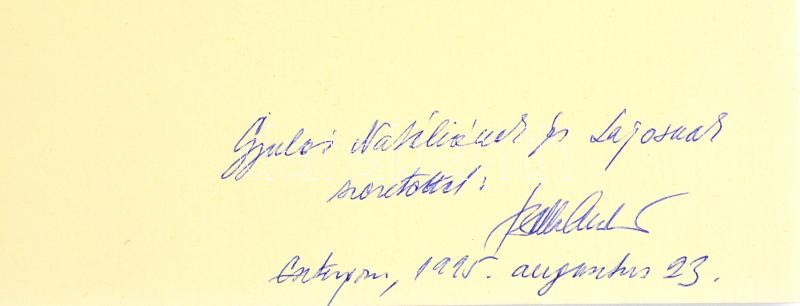 Gyulai Natáliának és Lajosnak
szeretettel:
Esztergom, 1995. augusztus 23.